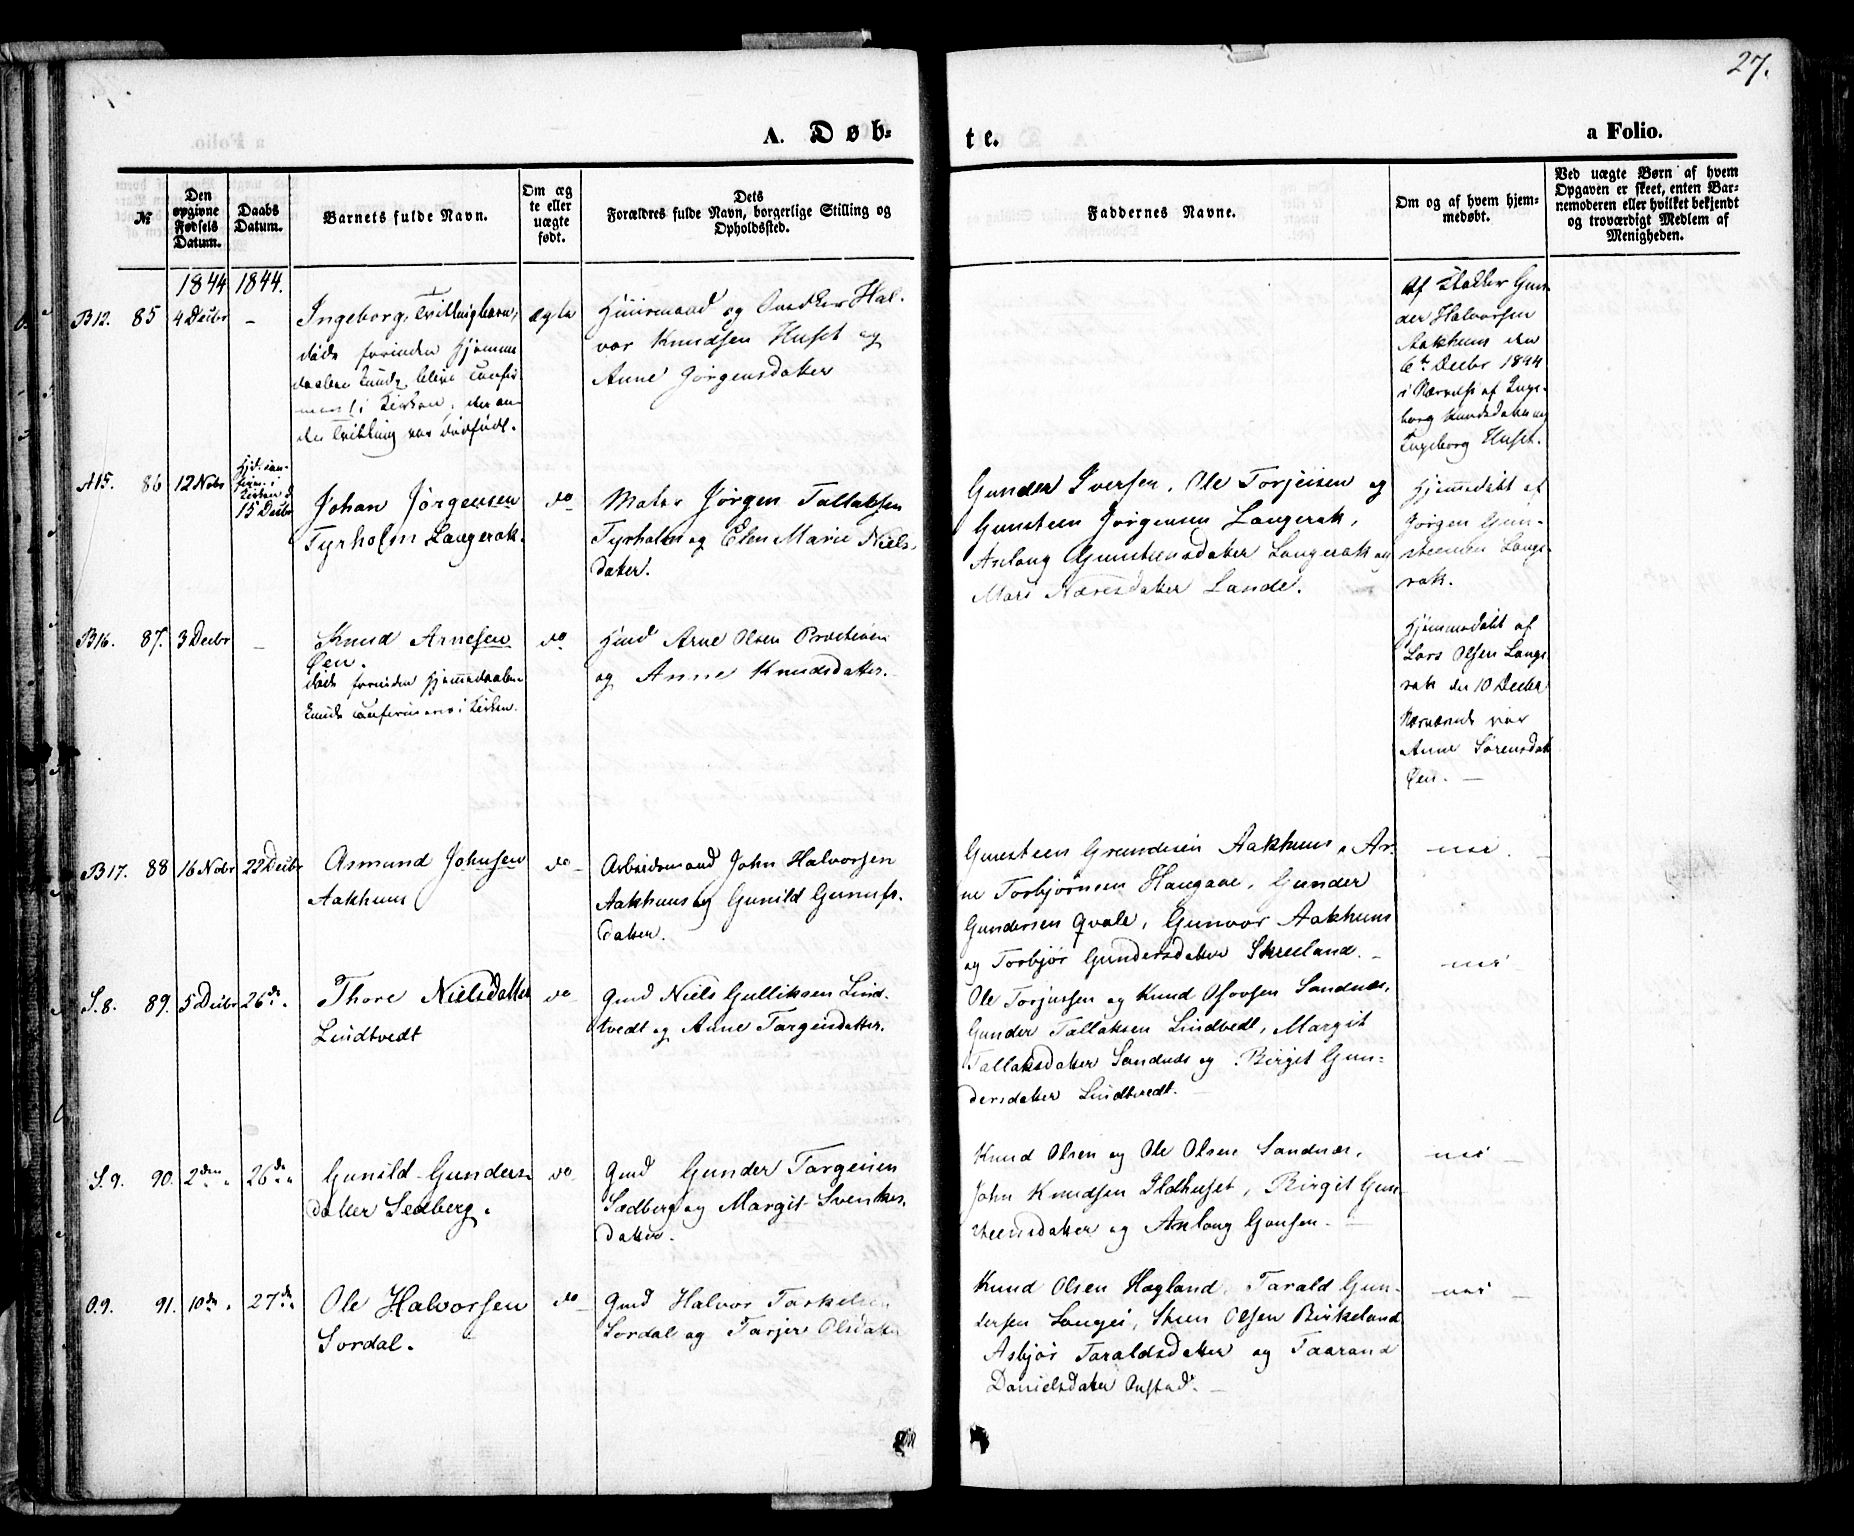 27.
A. Døb-
te.
a Folio.
№
Den opgivne Fødsels Datum.
Daabs Datum.
Barnets fulde Navn.
Om ægte eller uægte født.
Dets
Forældres fulde Navn, borgerlige Stilling og
Opholdssted.
Faddernes Navne.
Om og af hvem hjem-
medøbt.
Ved uægte Børn af hvem
Opgaven er skeet, enten Bar-
nemoderen eller hvilket bekjendt
og troværdigt Medlem af
Menigheden.
1844 1844.
B12. 85 4 Decbr –
Ingeborg, Tvillingbarn,
døde forinden Hjemme
daaben kunde blive confir
i Kirken, den an
den Tvilling var dødfødt.
ægte
Huusmand og Hal-
vor Knudsen Huset og
Anne Jørgensdatter
Af Gun-
der Halvorsen
Aakhuus den
6te Decbr 1844
i Nærvær af Inge-
borg Knudsdatter og
Ingeborg Huset.
A15. 86 12 Nobr
Kirken d
15 Decbr
Johan Jørgensen
Tyrholm Langerak.
do
Maler Jørgen Tallaksen
Tyrholm og Elen Marie Niels-
datter.
Gunder Iversen, Ole Torjeisen og
Gunsteen Jørgensen Langerak,
Aslaug Gunsteensdatter Langerak og
Mari Lande.
Hjemmedøbt af
Jørgen Gun-
steensen Lange-
rak.
B16. 87. 3 Decbr –
Knud Arnesen
Øen.
døde forinden Hjemmedaaben
kunde confirmeres i Kirken.
do
Arne Olsen
og Anne Knudsdatter.
Hjemmedøbt af
Lars Olsen Lange-
rak den 10 Decbr
Nærværende var
Anne Sørensdatt
Øen. –
B17. 88 16 Nobr 22 Decbr
Asmund Johnsen
Aakhuus
do
Arbeidsmand John Halvorsen
Aakhuus og Gunild Gunufs-
datter.
Gunsteen Aakhuus, Ar-
ne Torbjørnsen Haugane, Gunder
Gundersen Qvale, Gunvor Aakhuus
og Torbjør Gundersdatter Skreeland. –
nei. –
S.8. 89. 5 Decbr 26de
Thore Nielsdatter
Lindtvedt
do
Gmd Niels Gulliksen Lind-
tvedt og Anne Targeisdatter.
Ole Torjussen og Knud Olsen Sandnæs,
Gunder Tallaksen Lindtvedt, Margit
Tallaksdatter Sandnæs og Birgit Gun-
dersdatter Lindtvedt. –
nei
S.9. 90. 2den 26de
Gunild Gunders-
datter Seaberg.
do
Gmd Gunder Targeisen
Sædberg og Margit Svenkes-
datter.
Knud Olsen og Ole Olsen Sandnæs,
John Knudsen Ildhuset, Birgit Gun-
steensdatter og Aslaug
nei –
O.9. 91. 10de 27de
Ole Halvorsen
Sordal.
do
Gmd Halvor Torkelsen
Sordal og Tarjer Olsdatter
Knud Olsen Hægland, Tarald Gun-
dersen Steen Olsen Birkeland
Asbjør Taraldsdatter og Taarand
Danielsdatter
nei –